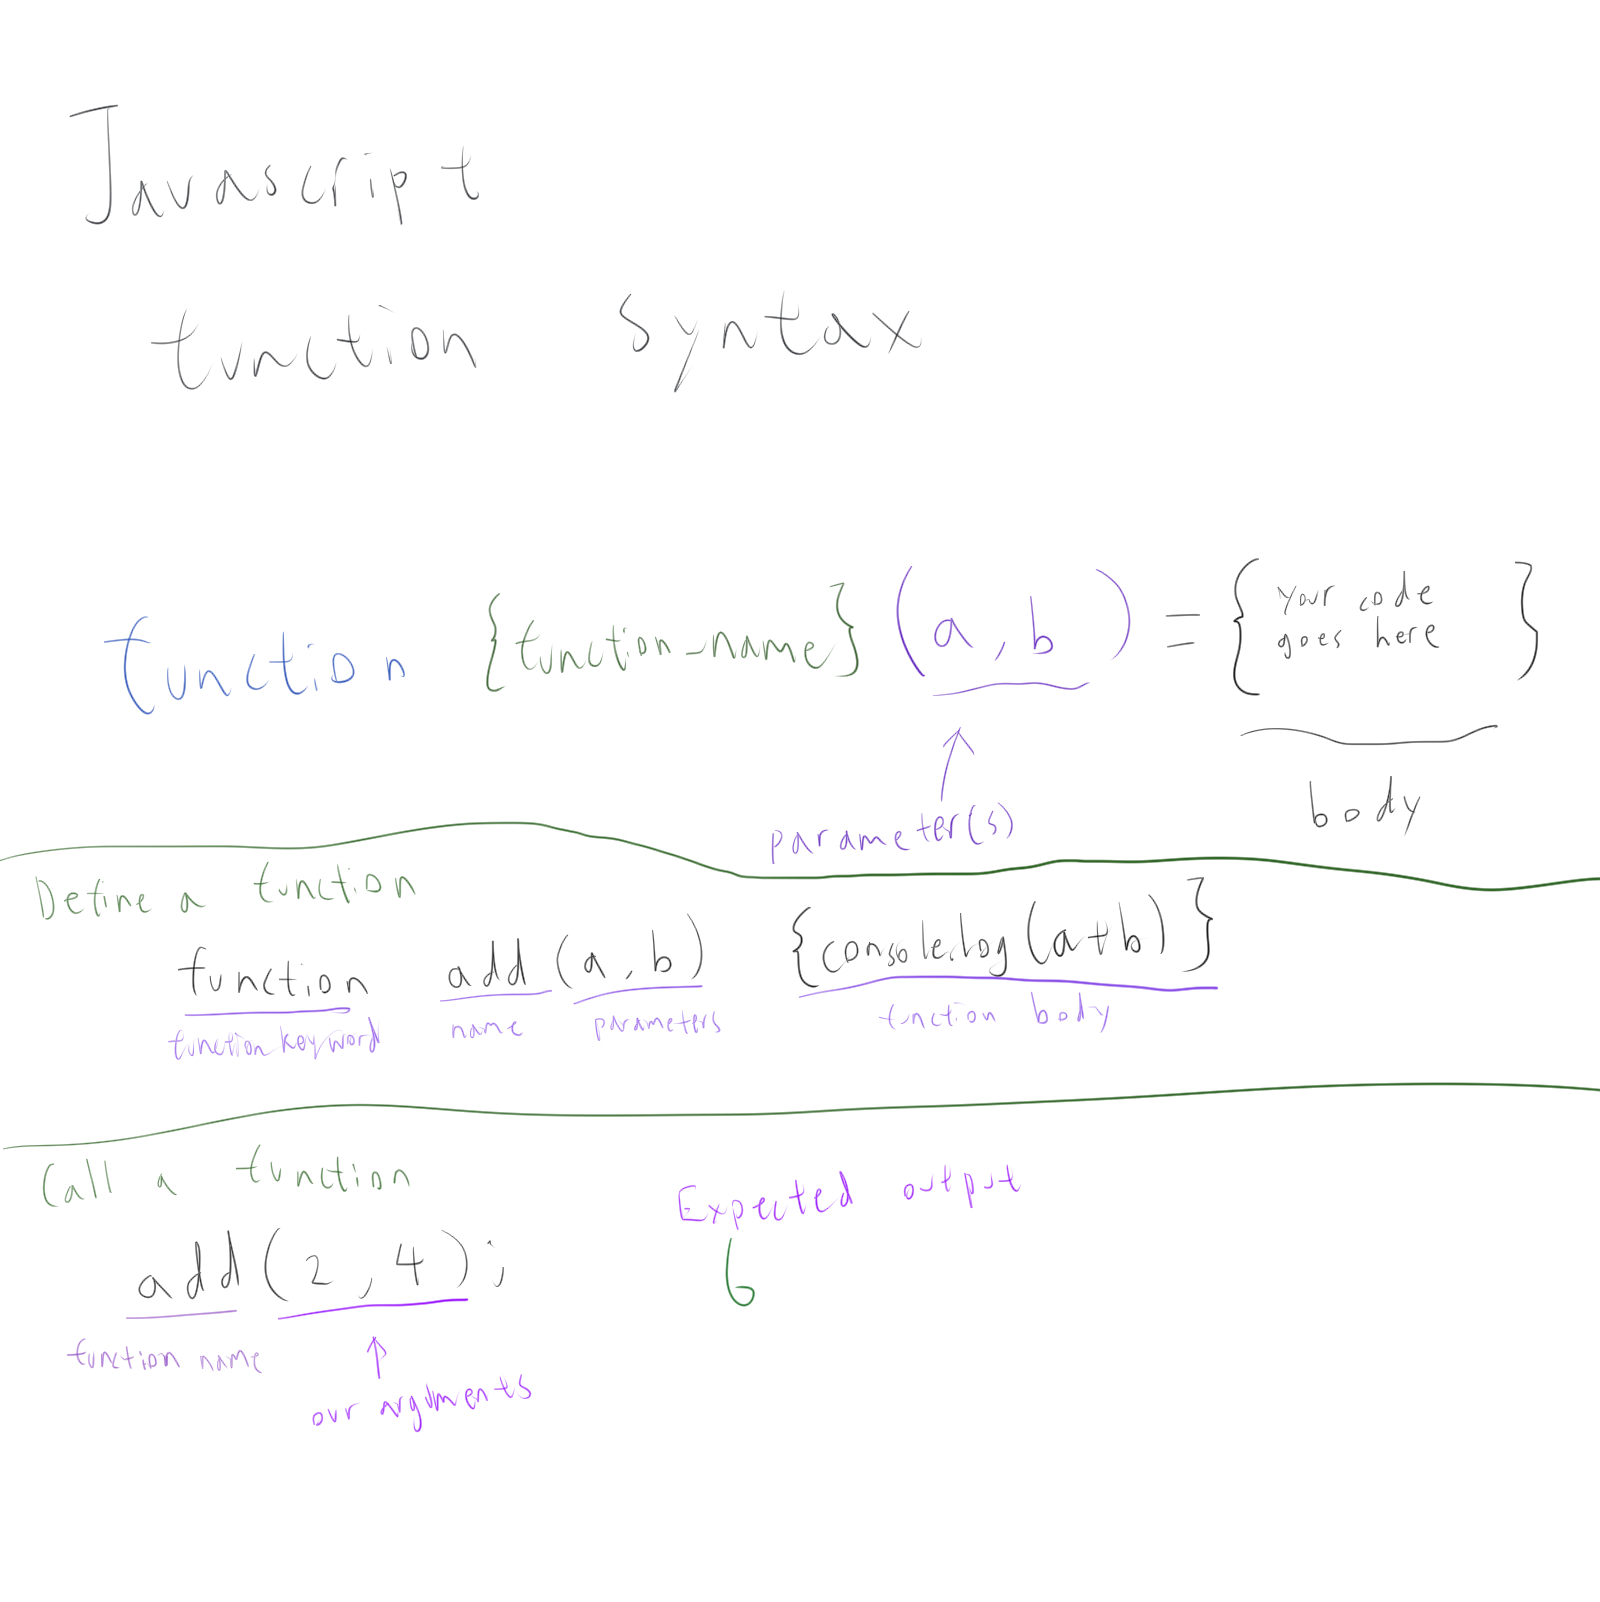 Javascript
function syntax
function {function_name} (a, b) = { your code
goes here }
parameter(s)
body
Define a function
function add (a, b) {console.log(a+b)}
function keyword name parameters function body
Call a function
Expected output
add(2, 4);
6
function name
our arguments